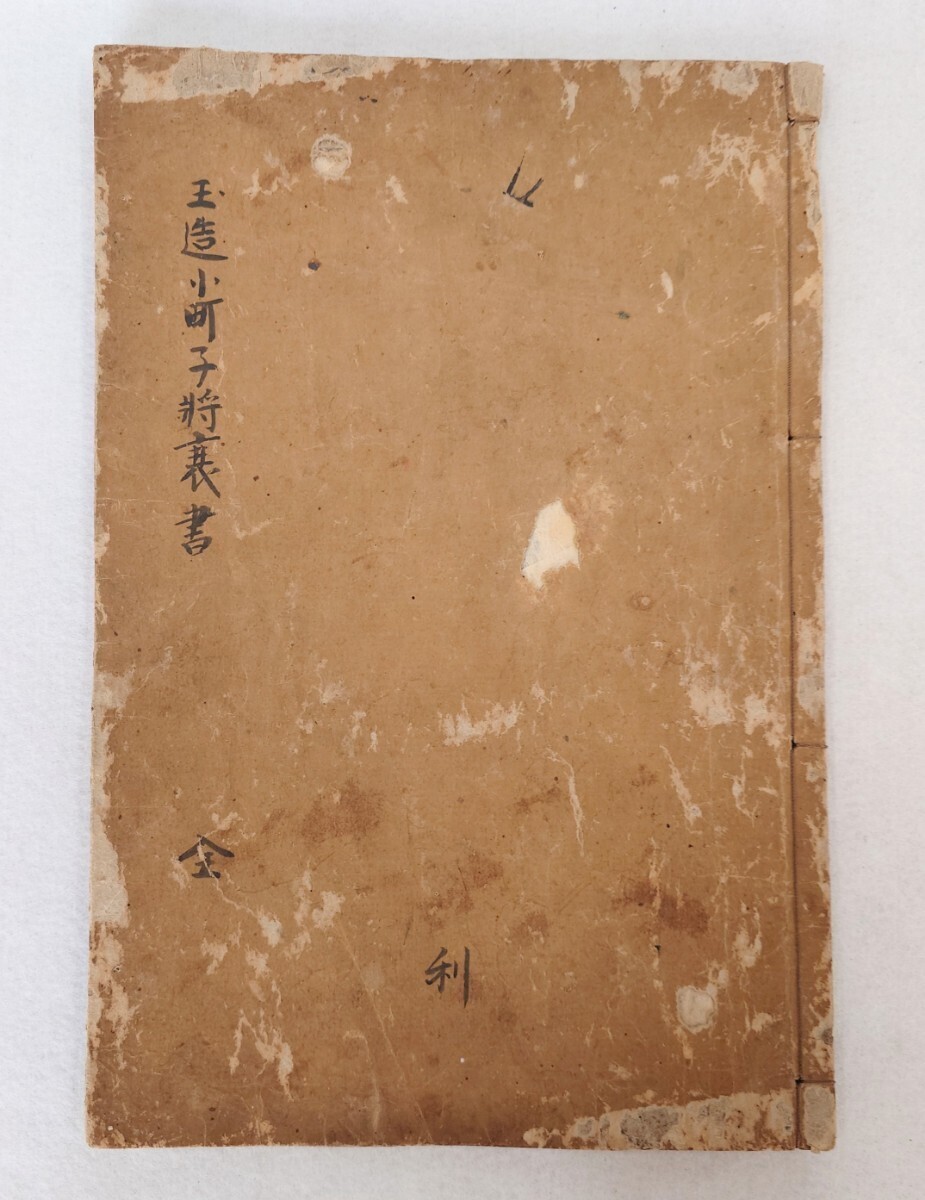 玉造小町子将衰書
全
利